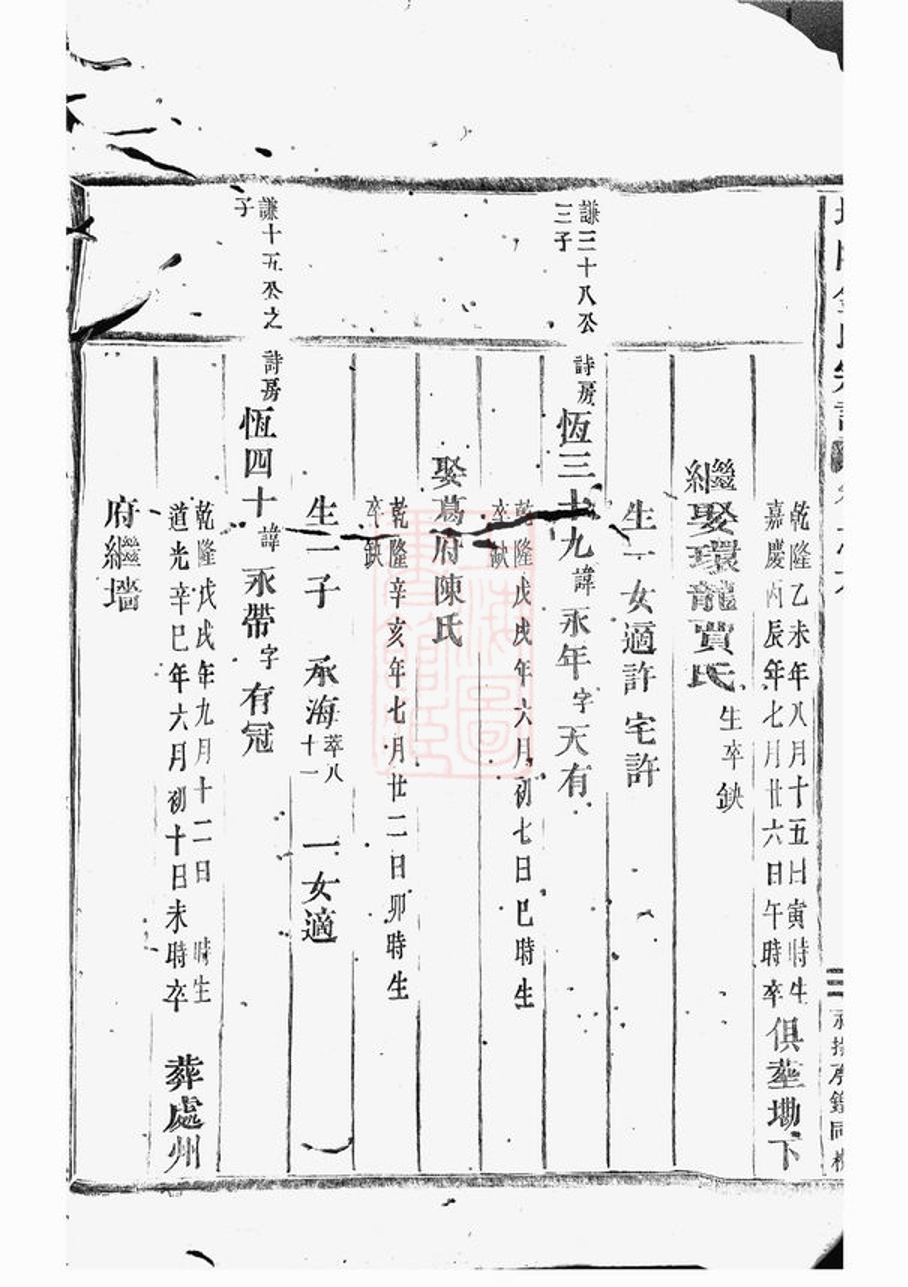 乾隆乙未年八月十五日寅時生
嘉慶丙辰年七月廿六日午時卒
俱塟墈下
繼娶環龍賈氏 生卒缺
生一女適許宅許
謙三十八公
三子
詩房 恆三十九 諱 永年 字 天有
乾隆戊戌年六月初七日巳時生
卒缺
娶葛府陳氏
乾隆辛亥年七月廿二日卯時生
卒缺
生一子 承海 萃八十一 一女適
謙十五公之
子
詩房 恆四十 諱 永帶 字 有冠
乾隆戊戌年九月十二日 時生
道光辛巳年六月初十日未時卒
葬處州
府繼墻